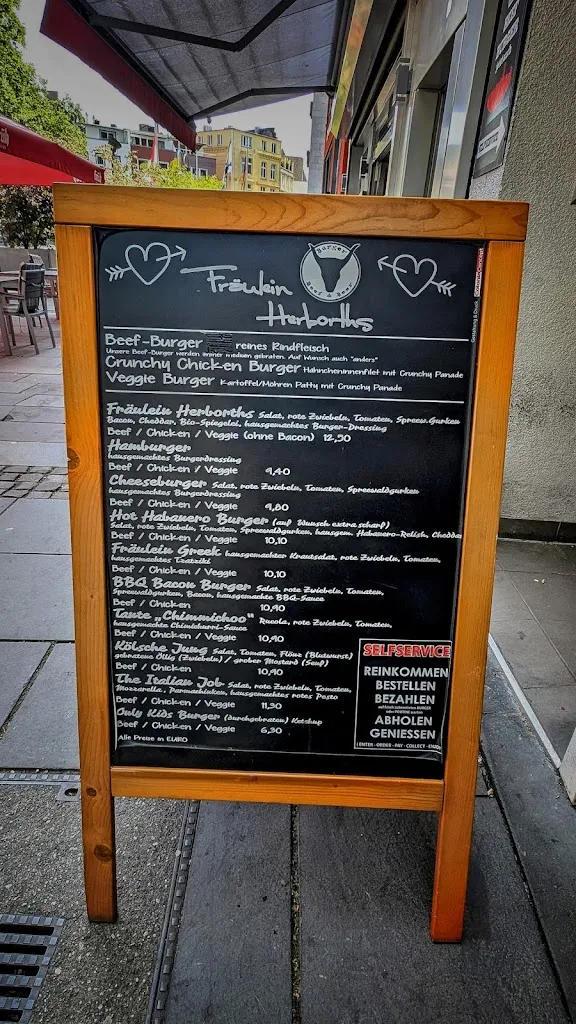 Fräulein
Burger
Beef & Beer
Herborths
Beef-Burger reines Rindfleisch
Unsere Beef-Burger werden immer medium gebraten. Auf Wunsch auch "anders"
Crunchy Chicken Burger Hähncheninnenfilet mit Crunchy Panade
Veggie Burger Kartoffel/Möhren Patty mit Crunchy Panade
Fräulein Herborths Salat, rote Zwiebeln, Tomaten, Spreew.Gurken
Bacon, Cheddar, Bio-Spiegelei, hausgemachtes Burger-Dressing
Beef / Chicken / Veggie (ohne Bacon) 12,50
Hamburger
hausgemachtes Burgerdressing
Beef / Chicken / Veggie 9,40
Cheeseburger Salat, rote Zwiebeln, Tomaten, Spreewaldgurken
hausgemachtes Burgerdressing
Beef / Chicken / Veggie 9,80
Hot Habanero Burger (auf Wunsch extra scharf)
Salat, rote Zwiebeln, Tomaten, Spreewaldgurken, hausgem. Habanero-Relish, Cheddar
Beef / Chicken / Veggie 10,10
Fräulein Greek hausgemachter Krautsalat, rote Zwiebeln, Tomaten,
hausgemachtes Tzatziki
Beef / Chicken / Veggie 10,10
BBQ Bacon Burger Salat, rote Zwiebeln, Tomaten,
Spreewaldgurken, Bacon, hausgemachte BBQ-Sauce
Beef / Chicken 10,90
Tante „Chimmichoo" Rucola, rote Zwiebeln, Tomaten,
hausgemachte Chimichurri-Sauce
Beef / Chicken / Veggie 10,90
Kölsche Jung Salat, Tomaten, Flönz (Blutwurst)
gebratene Öllig (Zwiebeln) / grober Mostard (Senf)
Beef / Chicken 10,90
The Italian Job Salat, rote Zwiebeln, Tomaten,
Mozzarella, Parmaschinken, hausgemachtes rotes Pesto
Beef / Chicken / Veggie 11,90
Only Kids Burger (durchgebraten) Ketchup
Beef / Chicken / Veggie 6,90
Alle Preise in EURO
SELFSERVICE
REINKOMMEN
BESTELLEN
BEZAHLEN
ABHOLEN
GENIESSEN
ENTER - ORDER - PAY - COLLECT - ENJOY